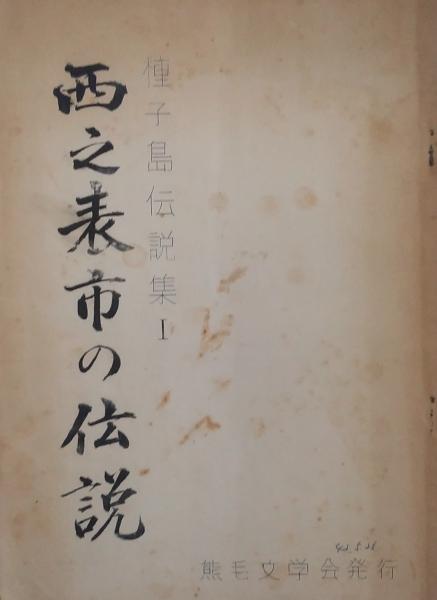 種子島伝説集 I
西之表市の伝説
42.5.21
熊毛文学会発行